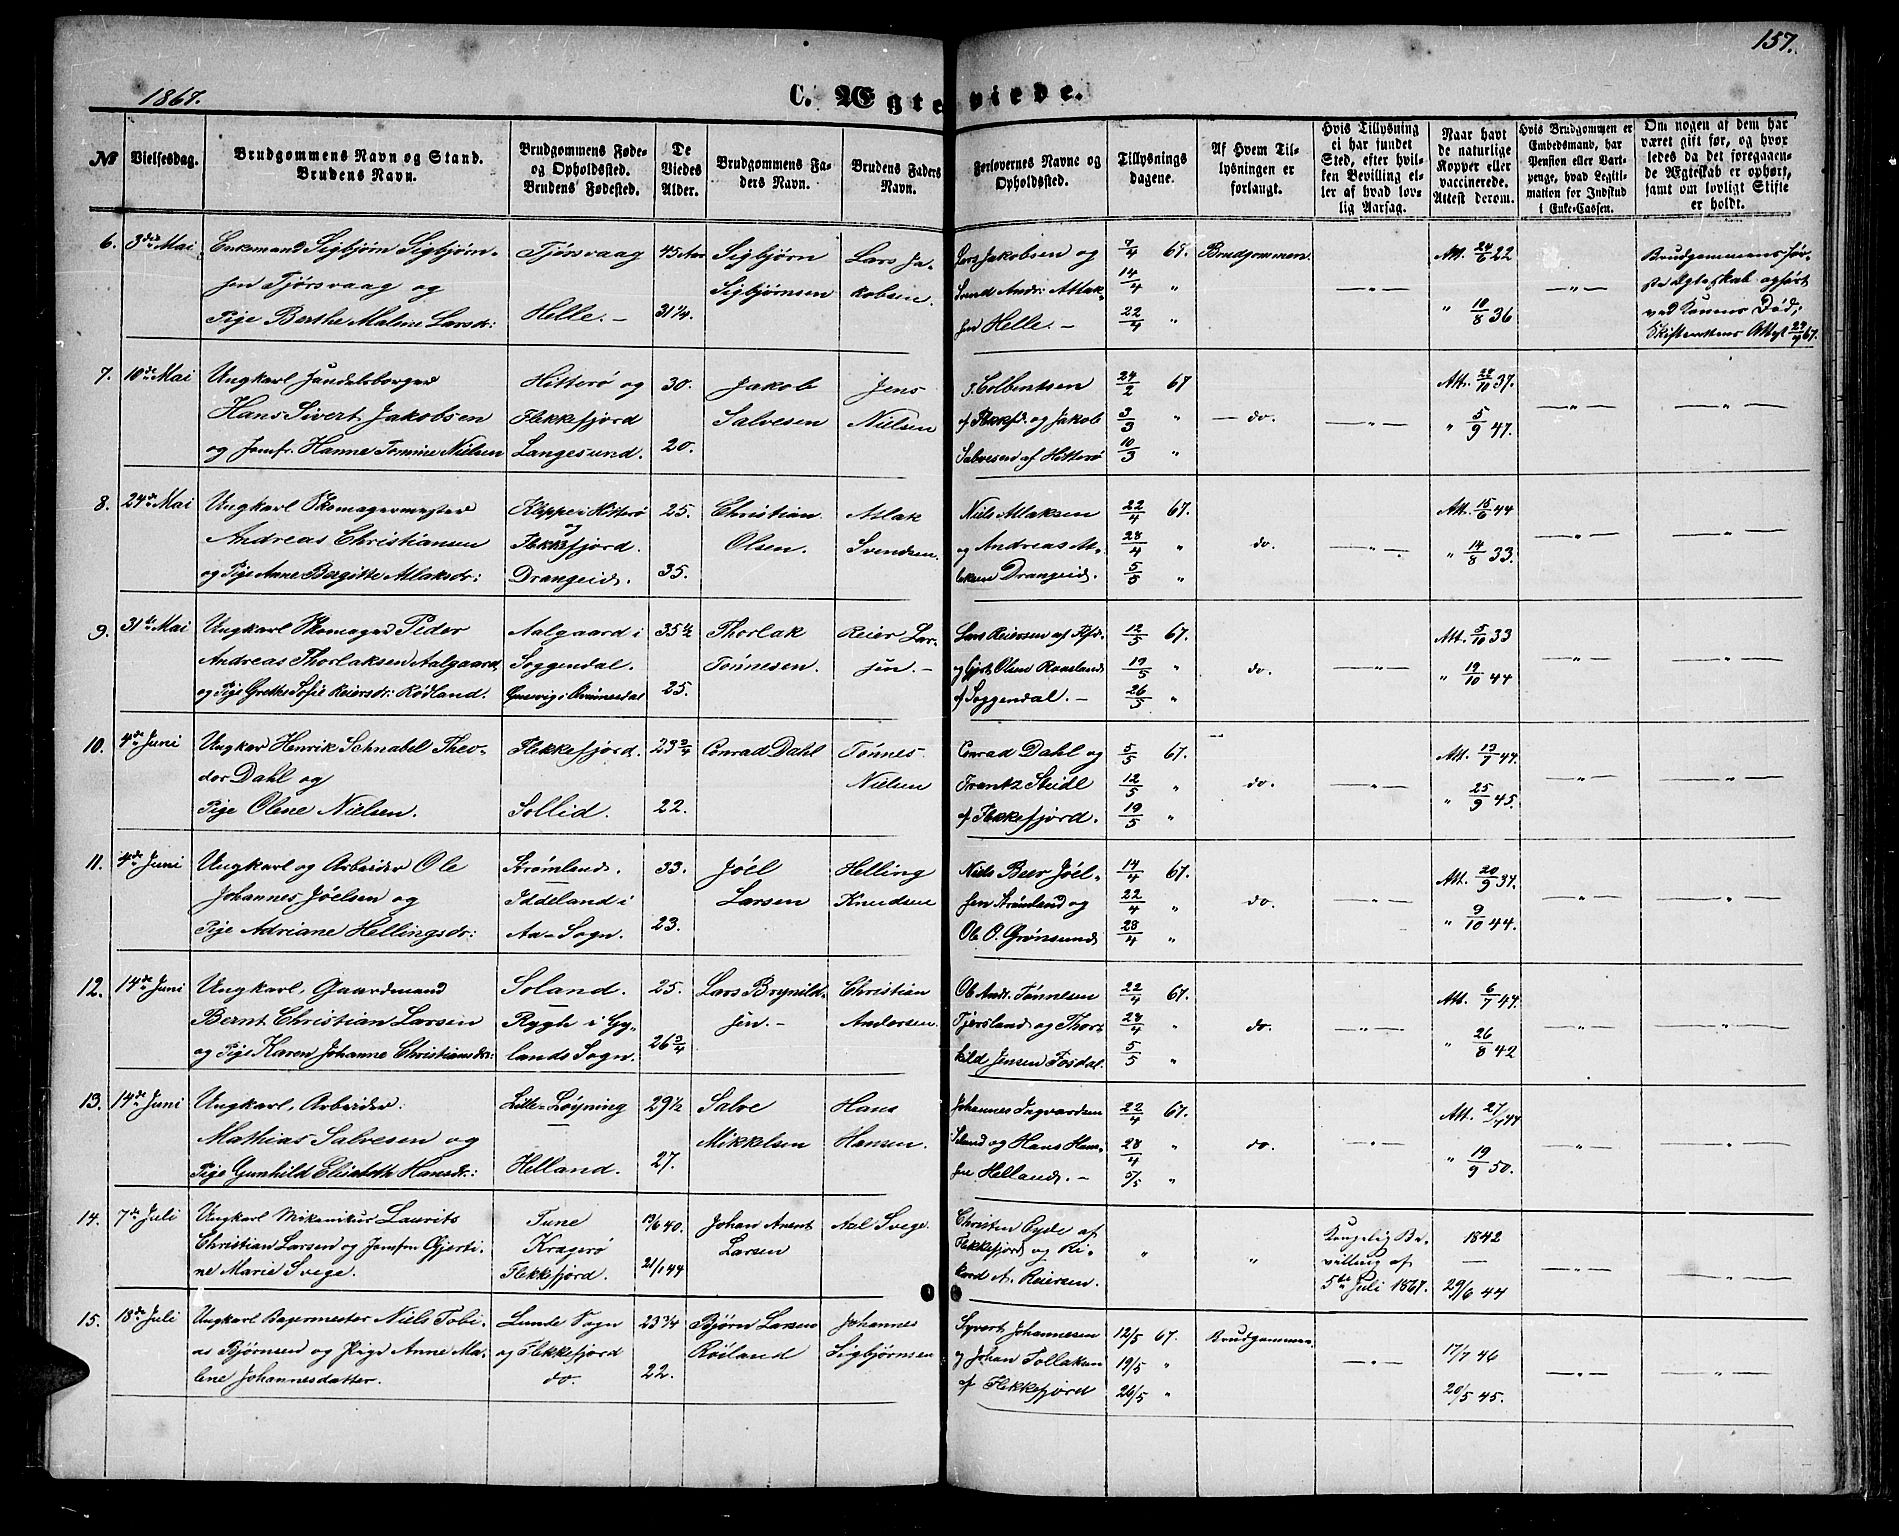 157.
1867.
C. Ægteviede.
No
Vielsesdag.
Brudgommens Navn og Stand.
Brudens Navn.
Brudgommens Føde-
og Opholdssted.
Brudens Fødested.
De
Viedes
Alder.
Brudgommens Fa-
ders Navn.
Brudens Faders
Navn.
Forlovernes Navne og
Opholdssted.
Tillysnings
dagene.
Af Hvem Til-
lysningen er
forlangt.
Hvis Tillysning
ei har fundet
Sted, efter hvil-
ken Bevilling el-
ler af hvad lov-
lig Aarsag.
Naar havt
de naturlige
Kopper eller
vaccinerede.
Attest derom.
Hvis Brudgommen er
Embedsmand, har
Pension eller Vart-
penge, hvad Legiti-
mation for Indskud
i Enke-Cassen.
Om nogen af dem har
været gift før, og hvor
ledes da det foregaaen-
de Ægteskab er ophørt,
samt om lovligt Skifte
er holdt.
6. 3die Mai Enkemand Sigbjørn Sigbjørn- Tjørsvaag 45 Aar Sigbjørn Lars Ja- Lars Jakobsen og 7/4 67. Brudgommen. Att. 24/6 22 Brudgommens før-
sen Tjørsvaag og Sigbjørnsen kobsen. Svend Andr: Atlak- 14/4 " — " — — " — ste Ægteskab ophørt
Pige Berthe Malene Larsdr: Helle. — 31 1/4. sen Helle. — 22/4 " " 10/8 36 ved Konens Død;
Skifterettens Attest 29/4 67.
7. 10de Mai Ungkarl Handelsborger Hitterø og 30. Jakob Jens T. Colbentsen 24/2 67 Att. 28/10 37.
Hans Sivert Jakobsen Flekkefjord Salvesen Nielsen af Flekkfd. og Jakob 3/3 " — do. — " — " 5/9 47. — " — — " —
og Jomfr. Hanne Tomine Nielsen Langesund. 20. Salvesen af Hitterø 10/3 "
8. 24de Mai Ungkarl Skomagermester Kleppe i Hitterø 25. Christian Atlak Niels Atlaksen 22/4 67. Att. 15/6 44
Andreas Christiansen og Flekkefjord. Olsen. Svendsen. og Andreas At- 28/4 " do. — " — " 14/8 33. — " — — " —
og Pige Anne Bergitte Atlaksdr: Drangeid. 35. laksen Drangeid. 5/5 "
9. 31te Mai Ungkarl Skomager Peder Aalgaard i 35 1/2 Thorlak Reier Lar- Lars Reiersen af Flfd. 12/5 67. Att. 5/10 33
Andreas Thorlaksen Aalgaard, Soggendal. Tønnesen. sen. — og Gjert Olsen Raasland 19/5 " do. — " — " 19/10 44 — " — — " —
og Pige Grethe Sofie Reiersdr: Rødland. 25. af Soggendal. — 26/5 "
10. 4de Juni Ungkar Henrik Schnabel Theo- Flekkefjord. 23 3/4 Conrad Dahl Tønnes Conrad Dahl og 5/5 67. Att. 13/7 47.
dor Dahl og Nielsen Frantz Steidl 12/5 " do. — " — " 25/9 45. — " — — " —
Pige Olene Nielsen. Sollid. 22. af Flekkefjord. 19/5 "
11. 4de Juni Ungkarl og Arbeider Ole Strømland. 33. Jóel Helling Niels Beer Jóel- 14/4 67. Att. 20/9 37.
Johannes Jóelsen og Iddeland i Larsen Knudsen sen Strømland og 22/4 " do. — " — " 9/10 44. — " — — " —
Pige Adriane Hellingsdr: Aa-Sogn. 23. Ole O. Grønsund 28/4 "
12. 14de Juni Ungkarl, Gaardmand Soland. 25. Lars Brynild- Christian Ole Andr. Tønnesen 22/4 67. Att. 6/7 47.
Bernt Christian Larsen Rygh i Gy- sen. — Andersen. Tjersland og Thor- 28/4 " do. — " — " 26/8 42 — " — — " —
og Pige Karen Johanne Christiansdr: lands Sogn. 26 3/4 kild Jensen Fosdal. 5/5 "
13. 14de Juni Ungkarl, Arbeider. Lille-Løyning 29 1/2 Salve Hans Johannes Ingvardsen 22/4 67. Att. 27/7 44
Mathias Salvesen og Mikkelsen Hansen. Seland og Hans Han- 28/4 " do. — " — " 19/9 50. — " — — " —
Pige Gunhild Elisabeth Hansdr: Helland. 27. sen Helland. — 5/5 "
14. 7de Juli Ungkarl Mekanikus Laurits Tune 13/6 40. Johan Arent Aal Svege. Christen Eyde af Kongelig Be- 1842
Christian Larsen og Jomfru Gjerti- Kragerø Larsen Flekkefjord og Ri- " " villing af — — " — — " —
ne Marie Svege. Flekkefjord. 21/1 44 kard A. Reiersen. 5te Juli 1867. 29/6 44
15. 18de Juli Ungkarl Bagermester Niels Tobi- Lunde Sogn 23 3/4 Bjørn Larsen Johannes Syvert Johannesen 12/5 67. Brudgommen
as Bjørnsen og Pige Anne Ma- og Flekkefjord Røiland Sigbjørnsen og Johan Tollaksen 19/5 " — " — 17/7 46 — " — — " —
lene Johannesdatter. do. 22. af Flekkefjord 26/5 " 20/5 45.